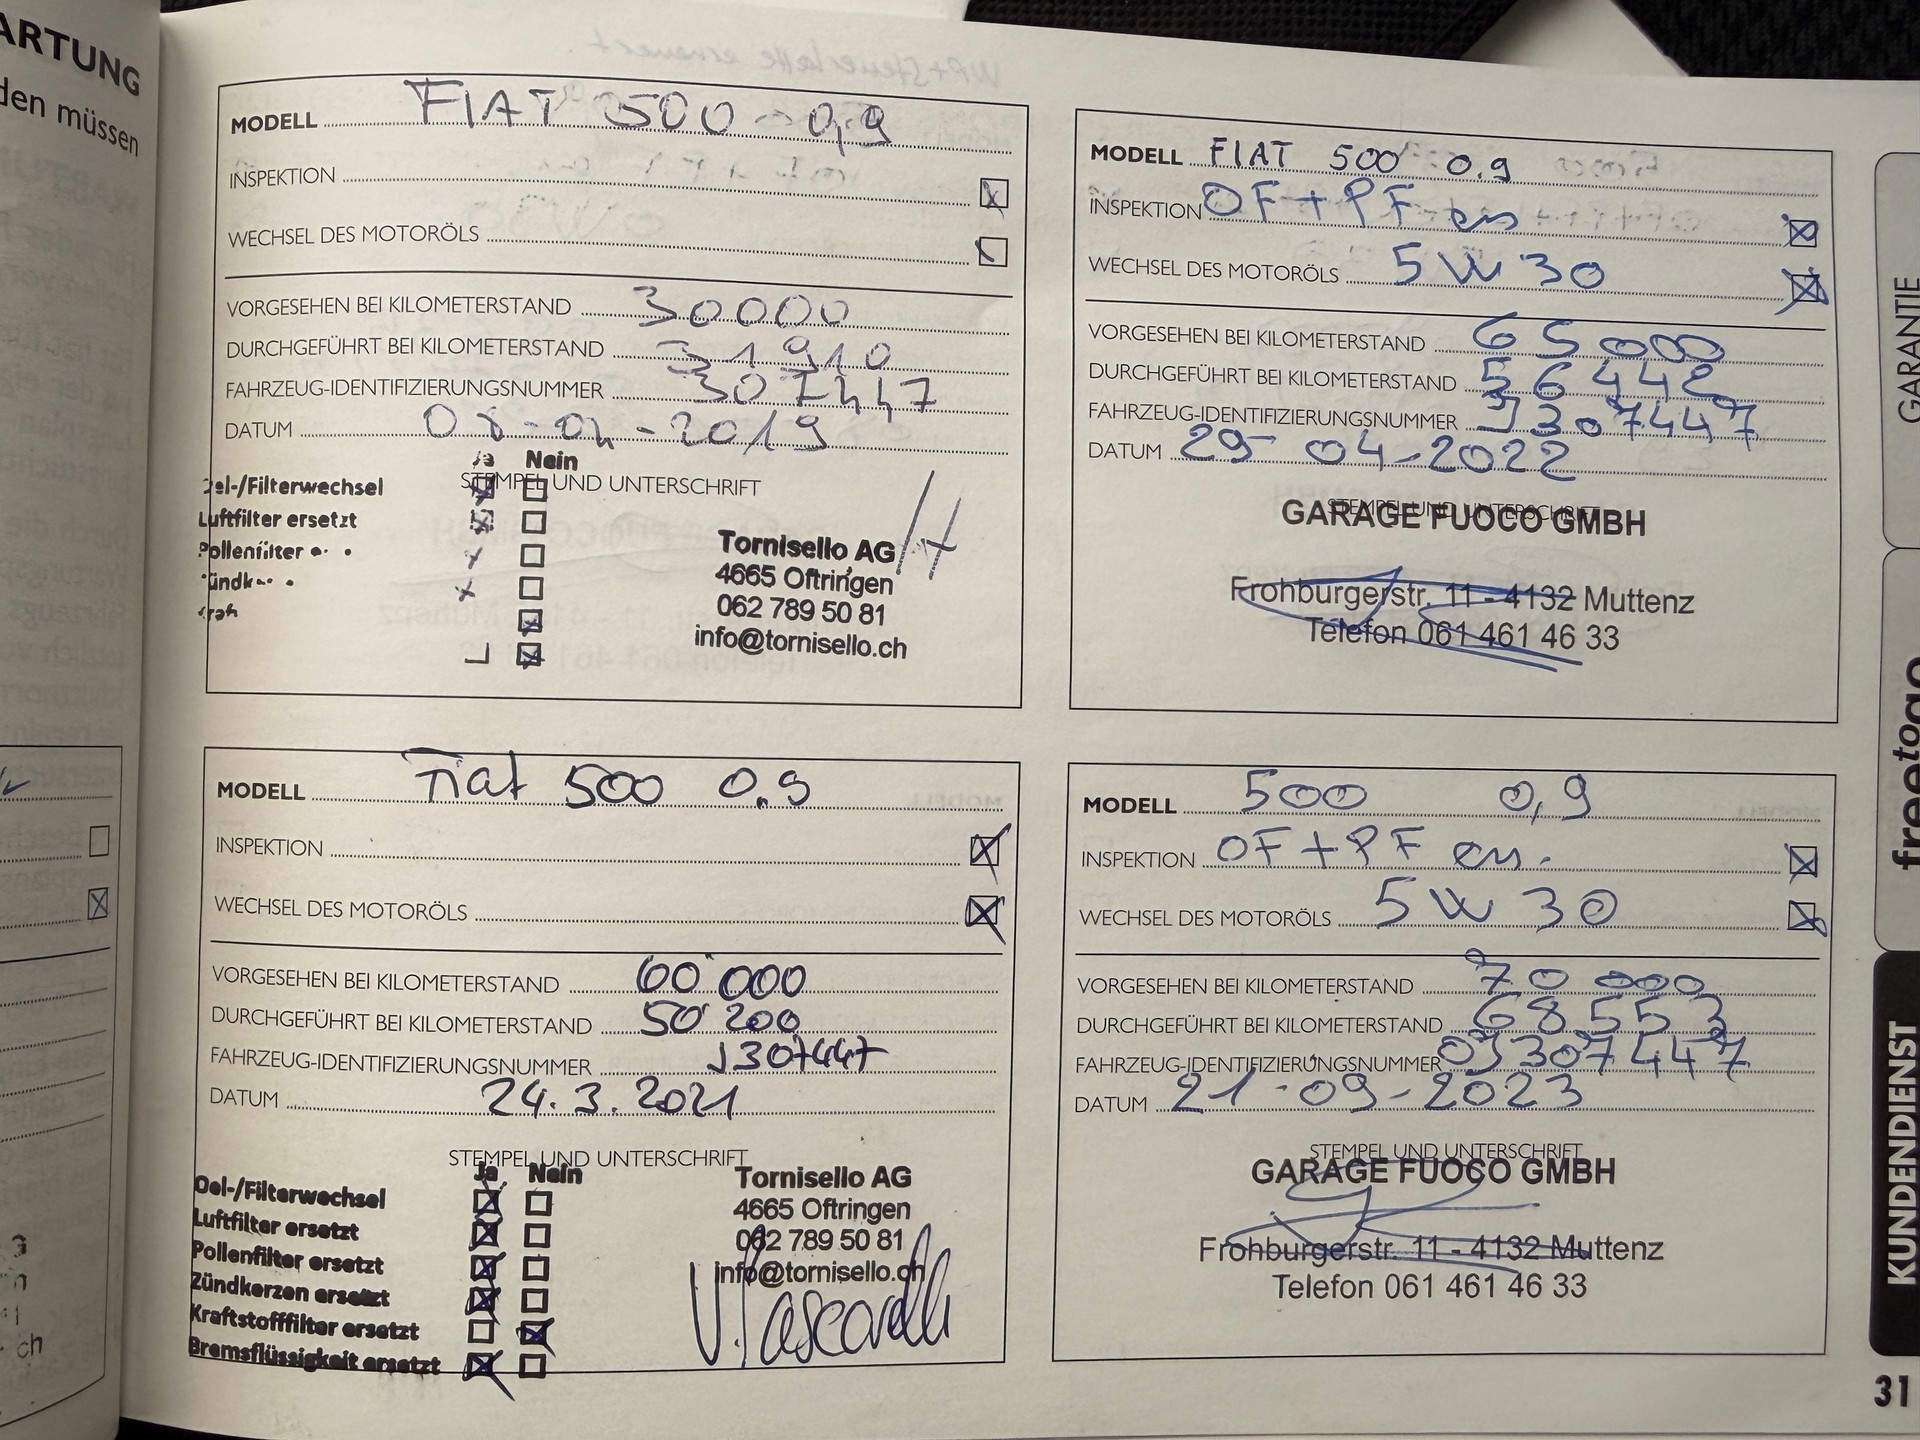 ARTUNG
den müssen
MODELL FIAT 500 0,9
INSPEKTION
WECHSEL DES MOTORÖLS
VORGESEHEN BEI KILOMETERSTAND 30000
DURCHGEFÜHRT BEI KILOMETERSTAND 31910
FAHRZEUG-IDENTIFIZIERUNGSNUMMER 307447
DATUM 08-04-2019
Ja Nein
STEMPEL UND UNTERSCHRIFT
Oel-/Filterwechsel
Luftfilter ersetzt
Pollenfilter
Zündk
Kraf
Tornisello AG
4665 Oftringen
062 789 50 81
info@tornisello.ch
MODELL FIAT 500 0.9
INSPEKTION OF+PF en
WECHSEL DES MOTORÖLS 5W30
VORGESEHEN BEI KILOMETERSTAND 65000
DURCHGEFÜHRT BEI KILOMETERSTAND 56442
FAHRZEUG-IDENTIFIZIERUNGSNUMMER J307447
DATUM 29-04-2022
STEMPEL UND UNTERSCHRIFT
GARAGE FUOCO GMBH
Frohburgerstr. 11 - 4132 Muttenz
Telefon 061 461 46 33
MODELL Fiat 500 0.9
INSPEKTION
WECHSEL DES MOTORÖLS
VORGESEHEN BEI KILOMETERSTAND 60'000
DURCHGEFÜHRT BEI KILOMETERSTAND 50'200
FAHRZEUG-IDENTIFIZIERUNGSNUMMER J307447
DATUM 24.3.2021
STEMPEL UND UNTERSCHRIFT
Ja Nein
Oel-/Filterwechsel
Luftfilter ersetzt
Pollenfilter ersetzt
Zündkerzen ersetzt
Kraftstofffilter ersetzt
Bremsflüssigkeit ersetzt
Tornisello AG
4665 Oftringen
062 789 50 81
info@tornisello.ch
MODELL 500 0,9
INSPEKTION OF+PF en.
WECHSEL DES MOTORÖLS 5W30
VORGESEHEN BEI KILOMETERSTAND 70 000
DURCHGEFÜHRT BEI KILOMETERSTAND 68553
FAHRZEUG-IDENTIFIZIERUNGSNUMMER 0J307447
DATUM 21-09-2023
STEMPEL UND UNTERSCHRIFT
GARAGE FUOCO GMBH
Frohburgerstr. 11 - 4132 Muttenz
Telefon 061 461 46 33
GARANTIE
freetogo
KUNDENDIENST
31
ch